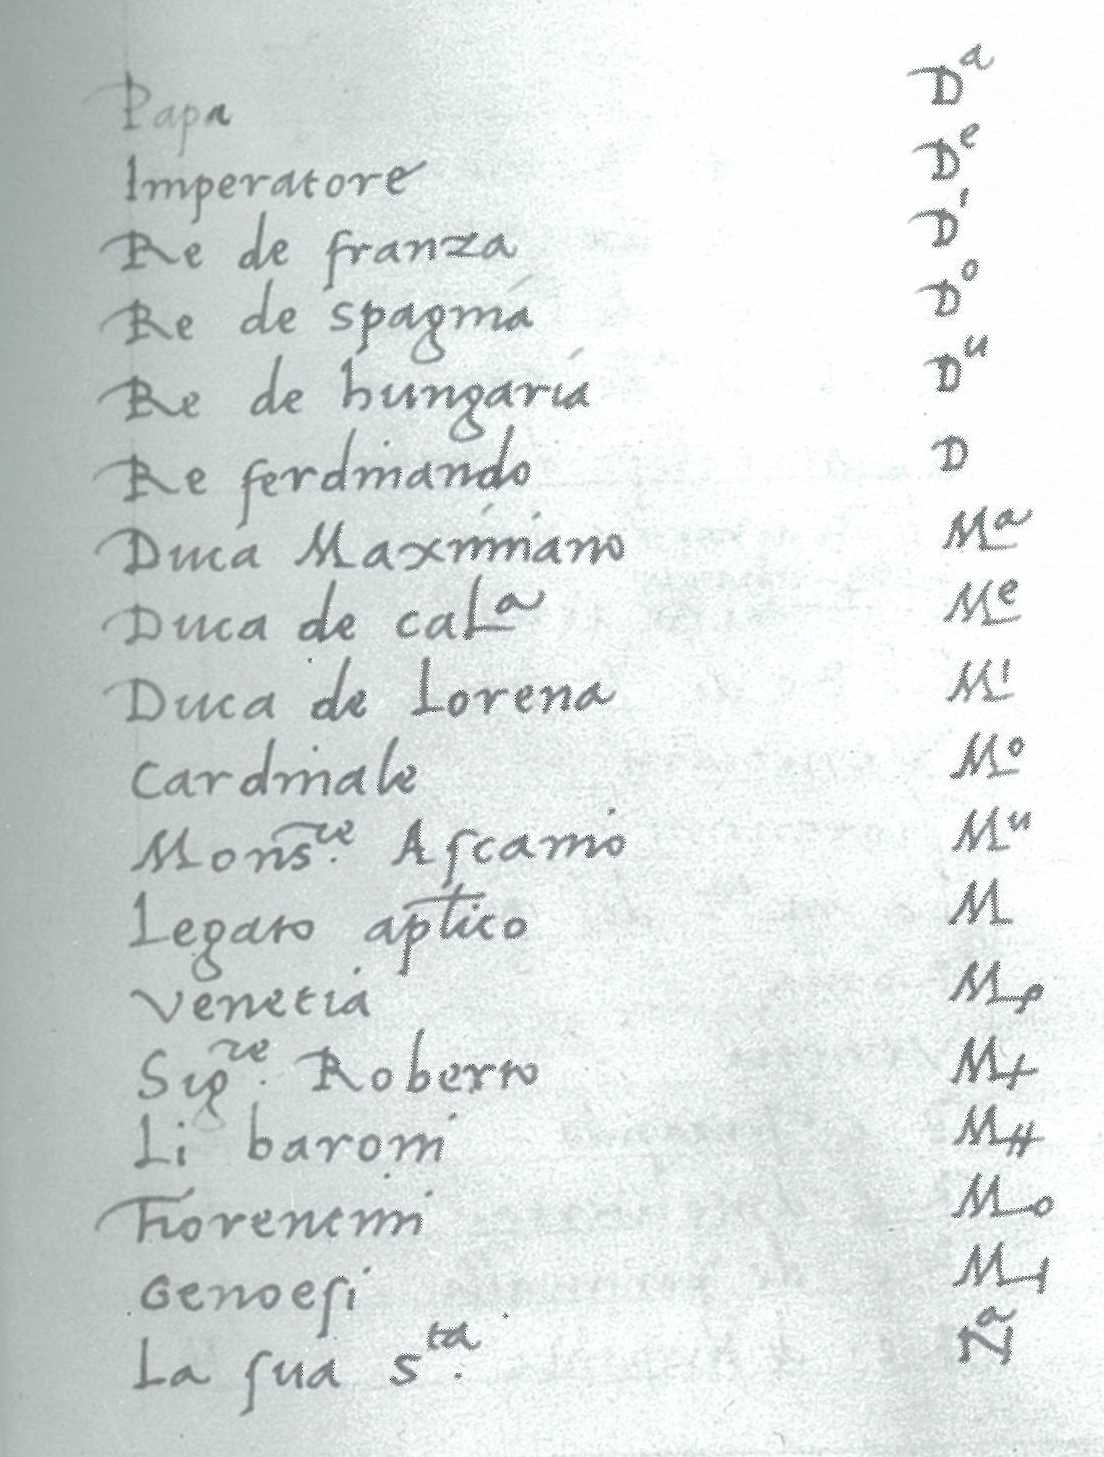 Papa D^a
Imperatore D^e
Re de franza D^i
Re de spagnia D^o
Re de hungaria D^u
Re ferdinando D
Duca Maximiano M^a
Duca de cal^a M^e
Duca de Lorena M^i
Cardinale M^o
Mons^re. Ascanio M^u
Legato ap̄tico M
Venetia Mp
Sig^re. Roberto M+
Li baroni M#
Fiorentini Mo
Genoesi M1
La sua s^ta. N^a